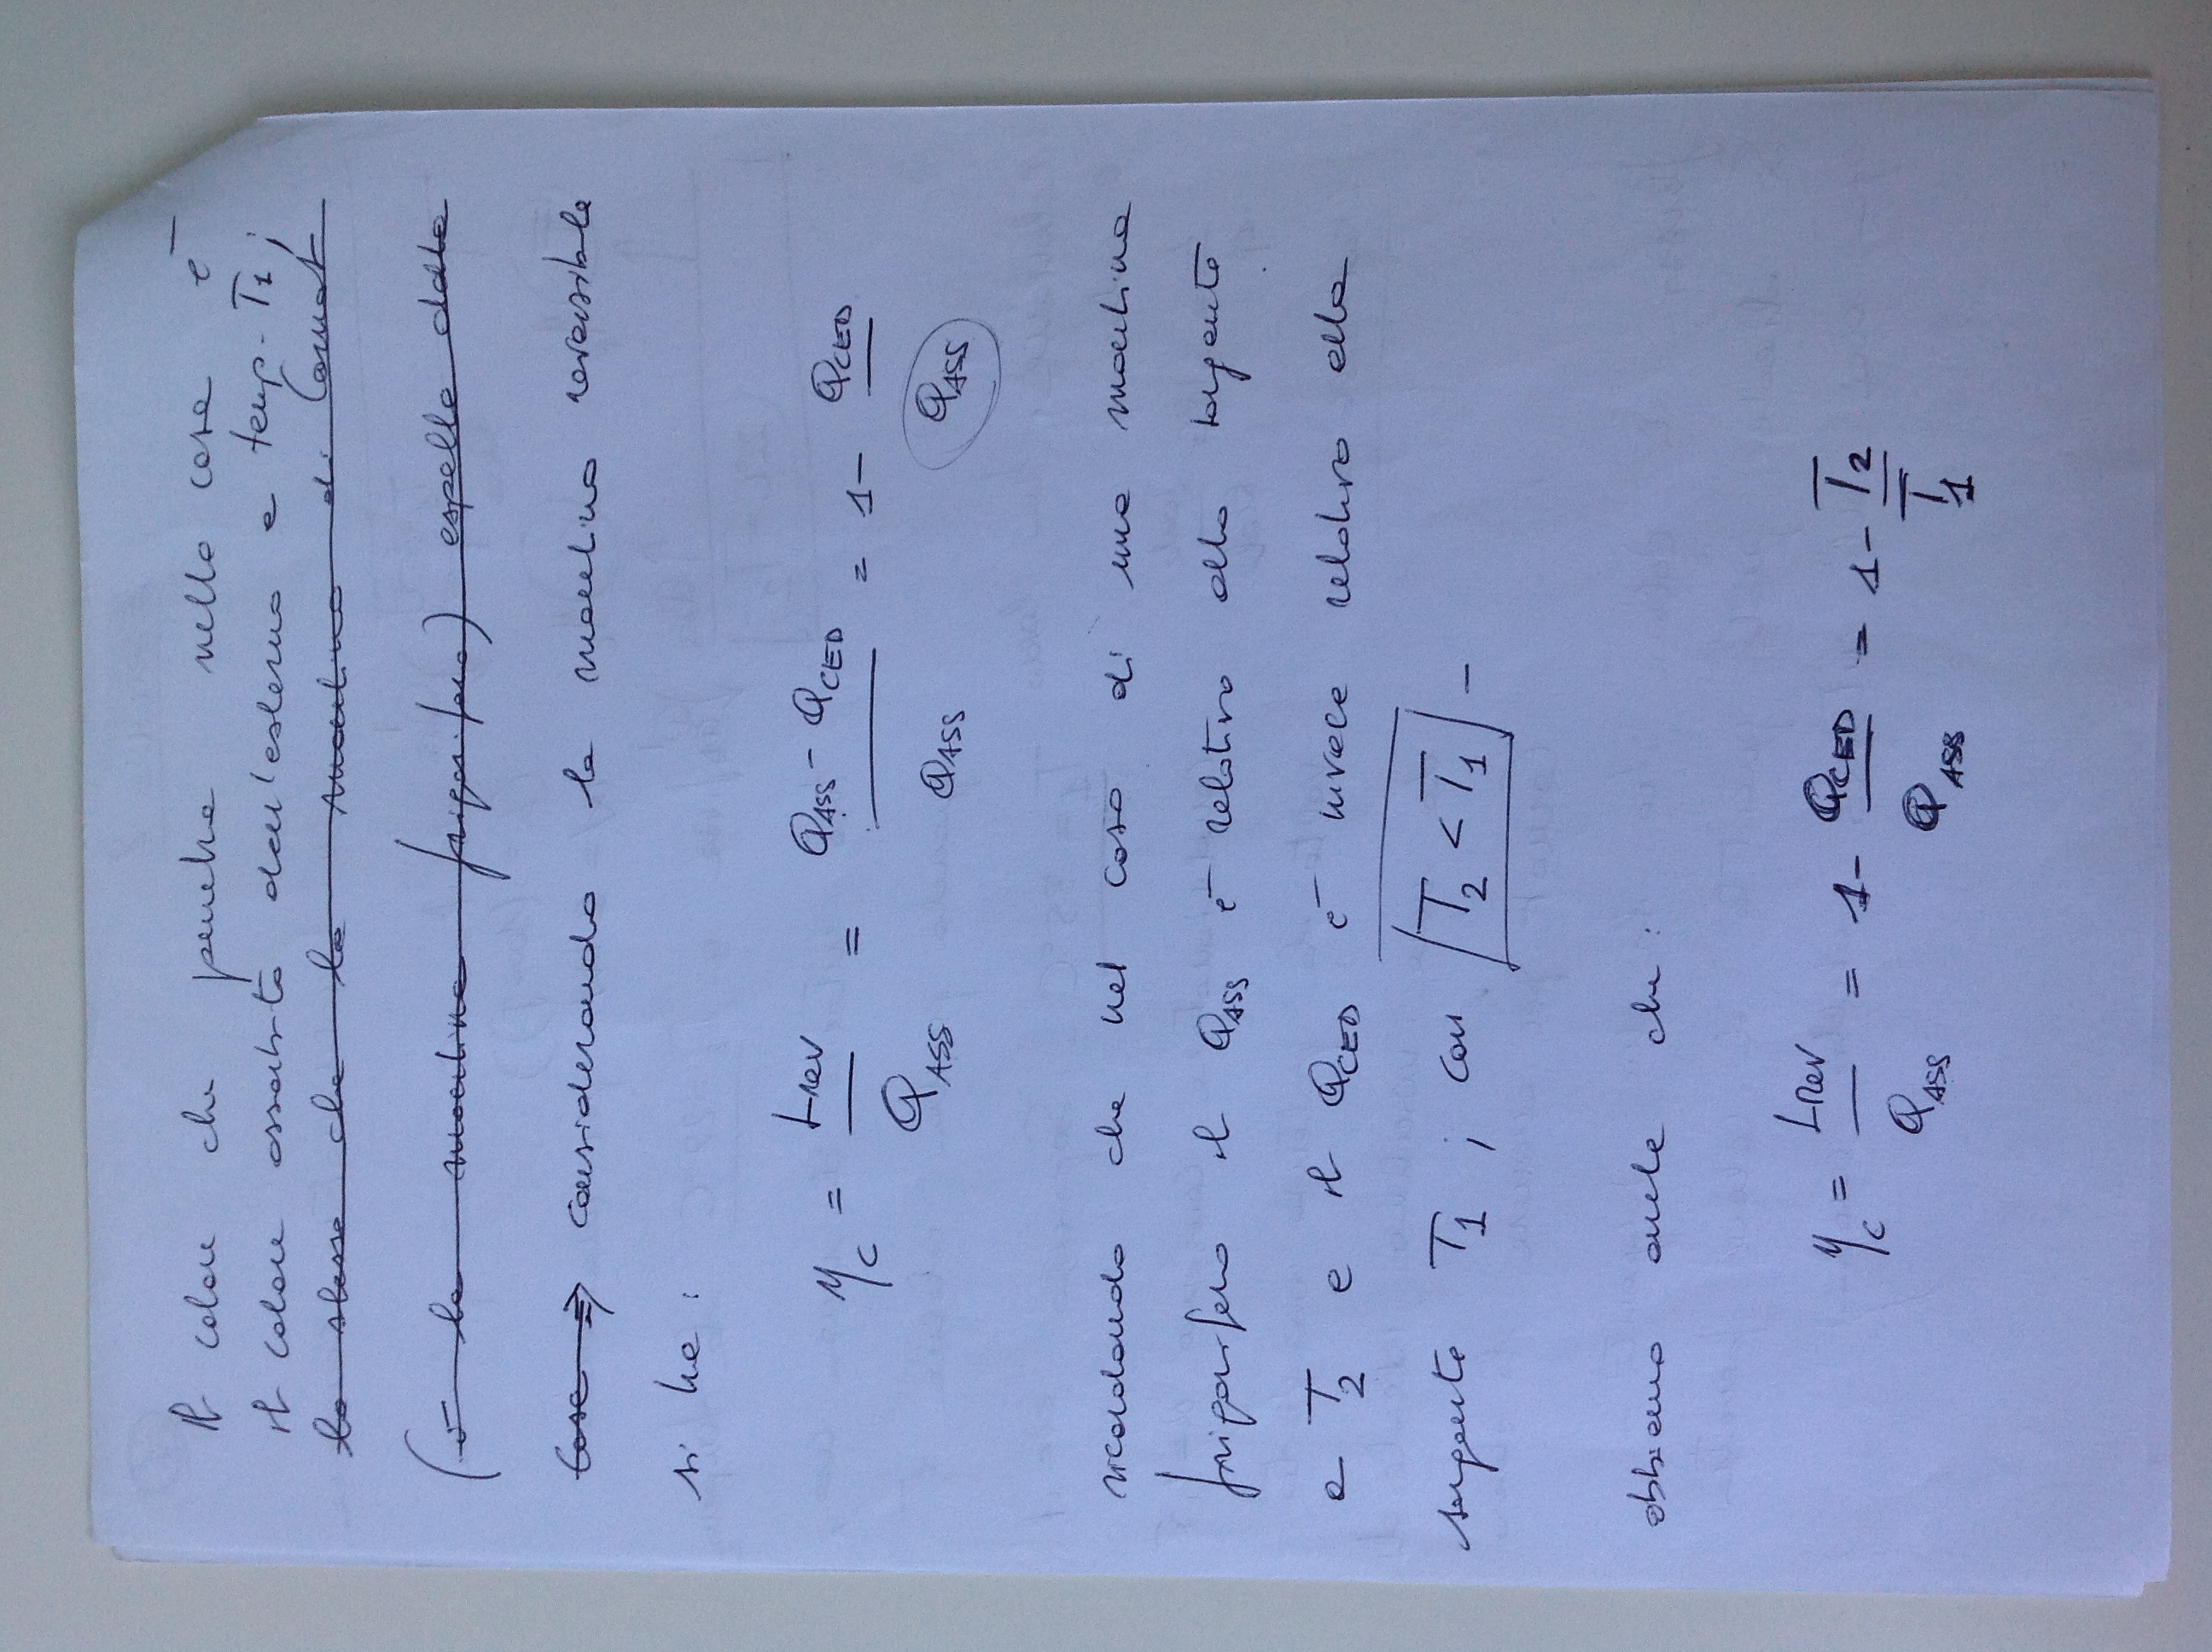 Il calore che penetra nella casa è
il calore assorbito dall'esterno a temp. T1;
lo stesso che la macchina di Carnot
(o la macchina frigorifera) espelle dalla
casa ⇒ considerando la macchina reversibile
si ha:
ηC = Lrev / QASS = (QASS - QCED) / QASS = 1 - QCED / QASS
ricordando che nel caso di una macchina
frigorifera il QASS è relativo alla sorgente
a T2 e il QCED è invece relativo alla
sorgente T1 ; con T2 < T1 -
abbiamo anche che:
ηC = Lrev / QASS = 1 - QCED / QASS = 1 - T2 / T1